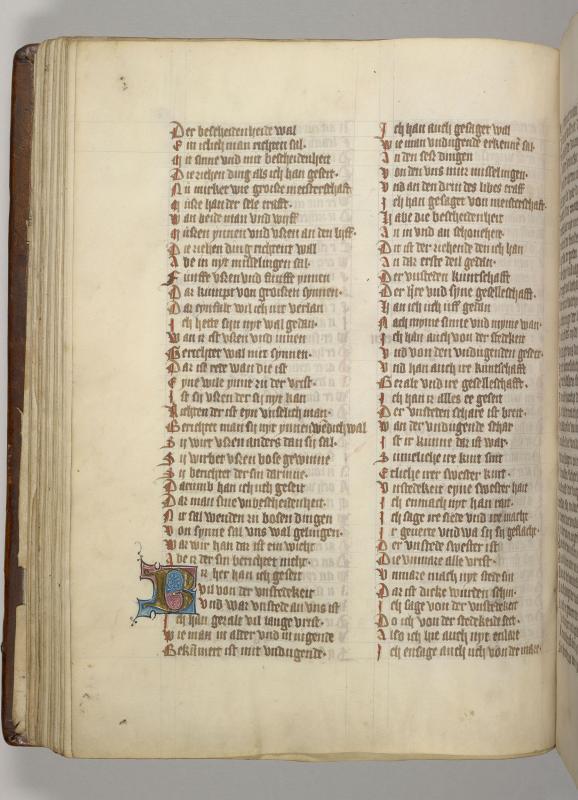 Der bescheidenheide wal
Ein iclich man richten sal.
Mit sinne vnd mit bescheidenheit
Die ziehen ding als ich han geseit.
Nu mirket wie groisse meisterschafft
Müße han der sele crafft.
Wan beide man vnd wyff
Müßen ynnen vnd vßen an den lyff.
Die ziehen ding richtent wal
Abe in nyt misselingen sal.
Funffe vßen vnd funffe ynnen
Dar kumpt von groissen synnen.
Dar eynfalt wil ich nit verlan
Ich hette syn nyt wal gedan.
Wan iz ist vßen vnd innen
Gerichtet wal mit synnen.
Daz ist rede wan die ist
Eyne wile ynne zu der vrist.
Ist sy vßen der sy nyt kan
Richten der ist eyn vnselich man.
Berichtet man sy nyt ynnen wedich wal
Sy wirt vßen anders dan sy sal.
Sy wirbet vßen bose gewinne
Sy berichtet der sin darinne.
Darumb han ich uch geseit
Daz man sine vnbescheidenheit.
Nit sal wenden zu bosen dingen
Von synne sal vns wal gelingen.
Waz wir han daz ist ein wicht
Abe iz der sin berichtet nicht.
Biz her han ich geseit
Vil von der vnstedekeit
Vnd waz vnstede an vns ist
Ich han gezalt vil lange vrist.
Wie man in alder vnd in iugende
Bekumert ist mit vndugende.
Ich han auch gesaget wal
Wie man vndugende erkennen sal.
An den sess dingen
Von den vns mag misselingen.
Vnd an den drin des libes craff
Ich han gesaget von meisterschaft.
Habe die bescheidenheit
An in vnd an schoneheit.
Dit ist der ziehende den ich han
An daz erste deil gedan.
Der vnsteden kuntschafft
Der ist vnd syne geselleschafft.
Han ich uch uff gedan
Nach myme sinne vnd myme wan.
Ich han auch von der stedekeit
Vnd von den vndugenden geseit.
Vnd han auch ire kuntschafft
Gezalt vnd ire geselleschafft.
Ich han iz alles er geseit
Der vnsteden schare ist breit.
Wan der vndugende schar
Ist ir kunne daz ist war.
Sumeliche ire kint sint
Etliche irer swester kint.
Vnstedekeit eyne swester hait
Ich enmach nyt han rait.
Ich sage ire siede vnd ire macht
Ir geuerte vnd wa sy sy geslacht.
Der vnstede swester ist
Die vnmaze alle vrist.
Vnmaze mach nyt stede sin
Daz ist dicke wurden schin.
Ich sage von der vnstedekeit
Do ich von der stedekeit seit.
Also ich hie auch nyt enlait
Ich ensage auch uch von der maze.